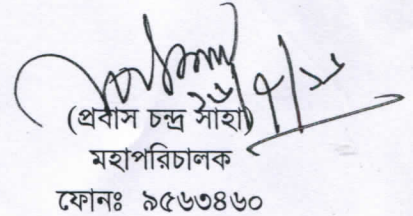 (প্রবাস চন্দ্র সাহা)
মহাপরিচালক
ফোনঃ ৯৫৬৩৪৬০